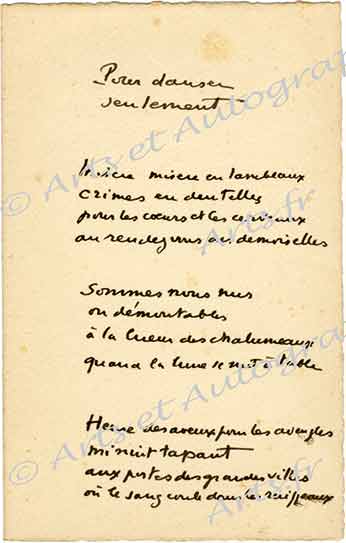 Pour danser
seulement
Misère misère en lambeaux
crimes en dentelles
pour les cœurs et les cerveaux
au rendez vous des demoiselles
Sommes nous nus
ou démontables
à la lueur des chalumeaux
quand la lune se met à table
Heure des aveux pour les aveugles
minuit tapant
aux portes des grandes villes
où le sang coule dans les ruisseaux
© Arts et Autographes
Arts.fr